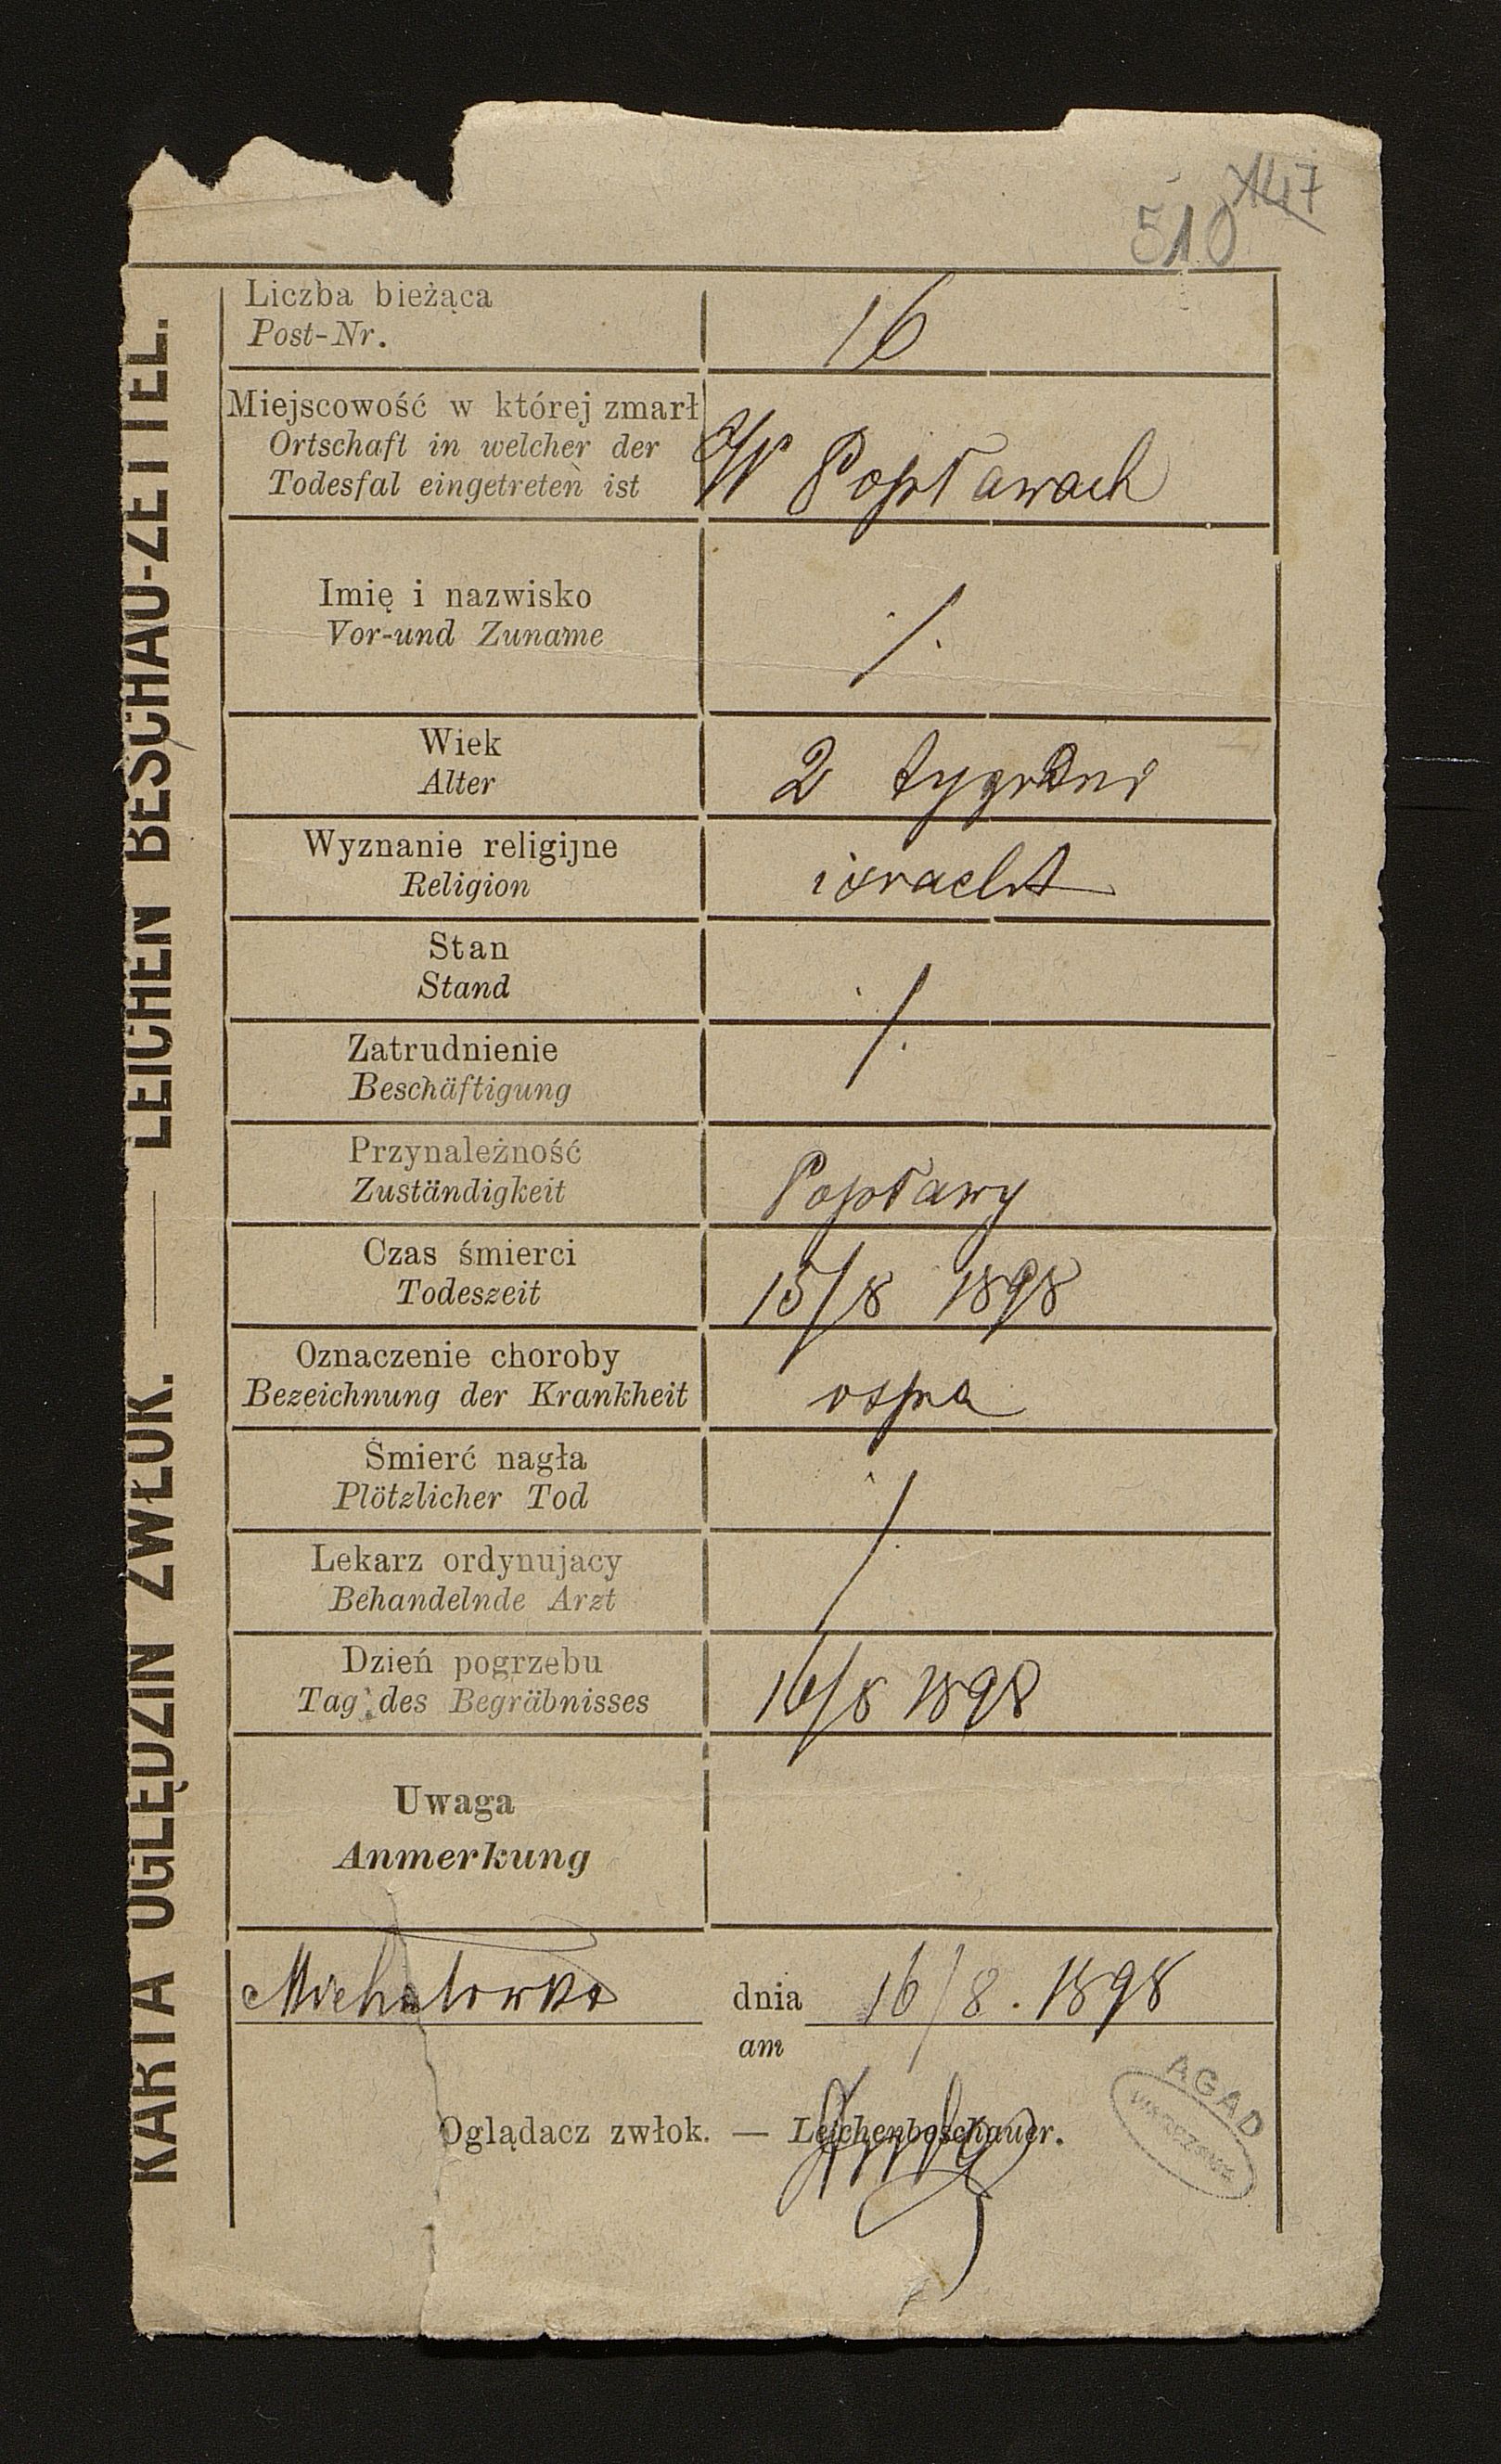 510 147
KARTA OGLĘDZIN ZWŁOK. — LEICHEN BESCHAU-ZETTEL.
Liczba bieżąca
Post-Nr.
16
Miejscowość w której zmarł
Ortschaft in welcher der
Todesfal eingetreten ist
W Popławach
Imię i nazwisko
Vor-und Zuname
./.
Wiek
Alter
2 tygodni
Wyznanie religijne
Religion
israelit
Stan
Stand
./.
Zatrudnienie
Beschäftigung
Przynależność
Zuständigkeit
Popławy
Czas śmierci
Todeszeit
15/8 1898
Oznaczenie choroby
Bezeichnung der Krankheit
ospa
Śmierć nagła
Plötzlicher Tod
./.
Lekarz ordynujacy
Behandelnde Arzt
Dzień pogrzebu
Tag des Begräbnisses
16/8 1898
Uwaga
Anmerkung
Michałowka dnia 16/8. 1898
am
Oglądacz zwłok. — Leichenbeschauer.
AGAD